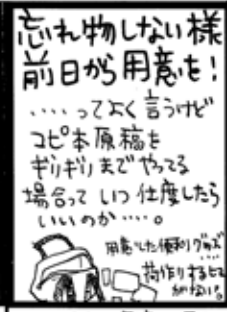 忘れ物しない様
前日から用意を!
‥‥ってよく言うけど
コピ本原稿を
ギリギリまでやってる
場合って いつ仕度したら
いいのか‥‥。
用意した便利グッズ
荷作りするヒマ
がない。